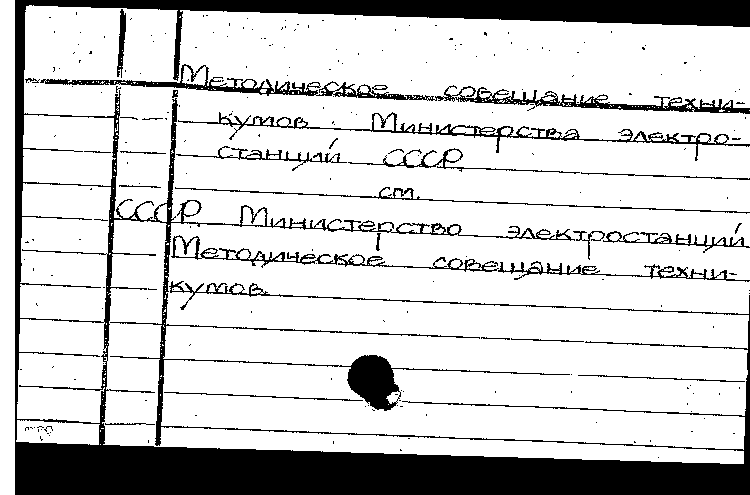 Методическое совещание техни-
кумов Министерства электро-
станций СССР
см.
СССР. Министерство электростанций
Методическое совещание техни-
кумов